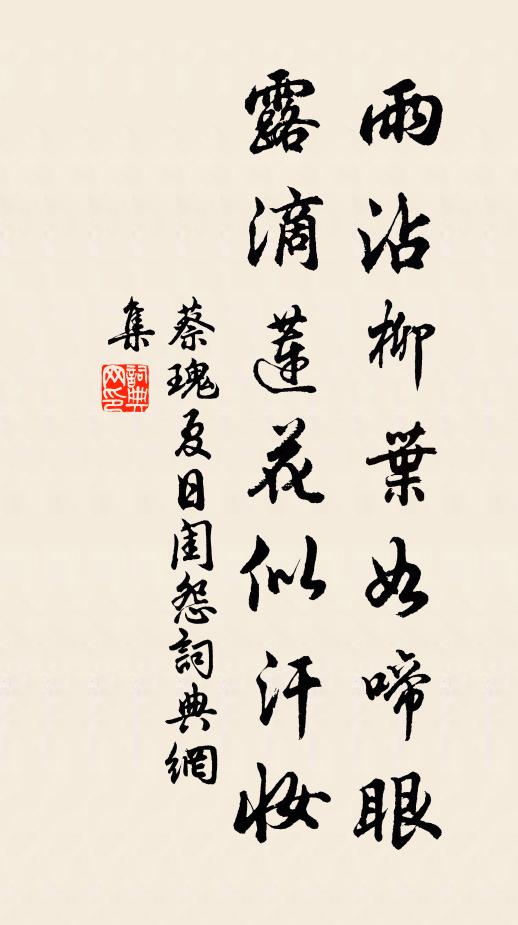 雨沾柳葉如啼眼
露滴蓮花似汗妝
蔡瑰夏日閨怨詞典網
集
詞典
网印